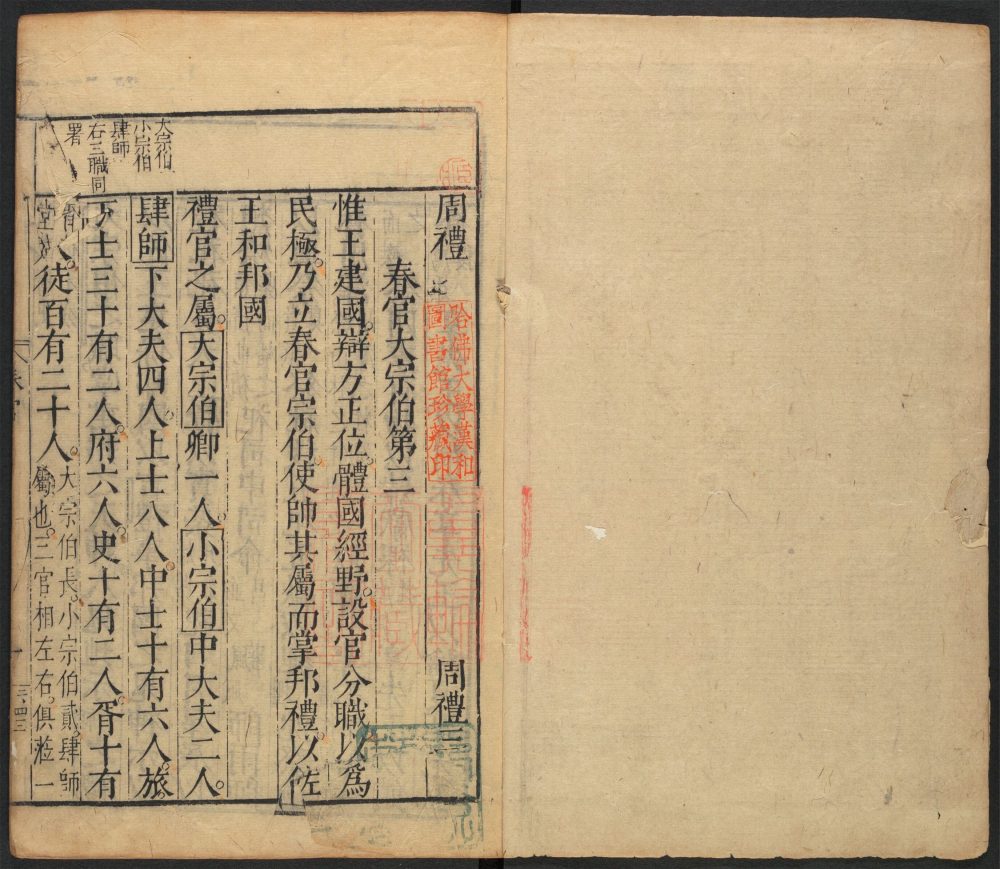 周禮 周禮三
哈佛大學漢和
圖書館珍藏印
春官大宗伯第三
惟王建國辯方正位體國經野設官分職以爲
民極乃立春官宗伯使帥其屬而掌邦禮以佐
王和邦國
禮官之屬大宗伯卿一人小宗伯中大夫二人
肆師下大夫四人上士八人中士十有六人旅
下士三十有二人府六人史十有二人胥十有
徒百有二十人大宗伯長小宗伯貳肆師
屬也三官相左右俱涖一
大宗伯
小宗伯
肆師
右三職同
署